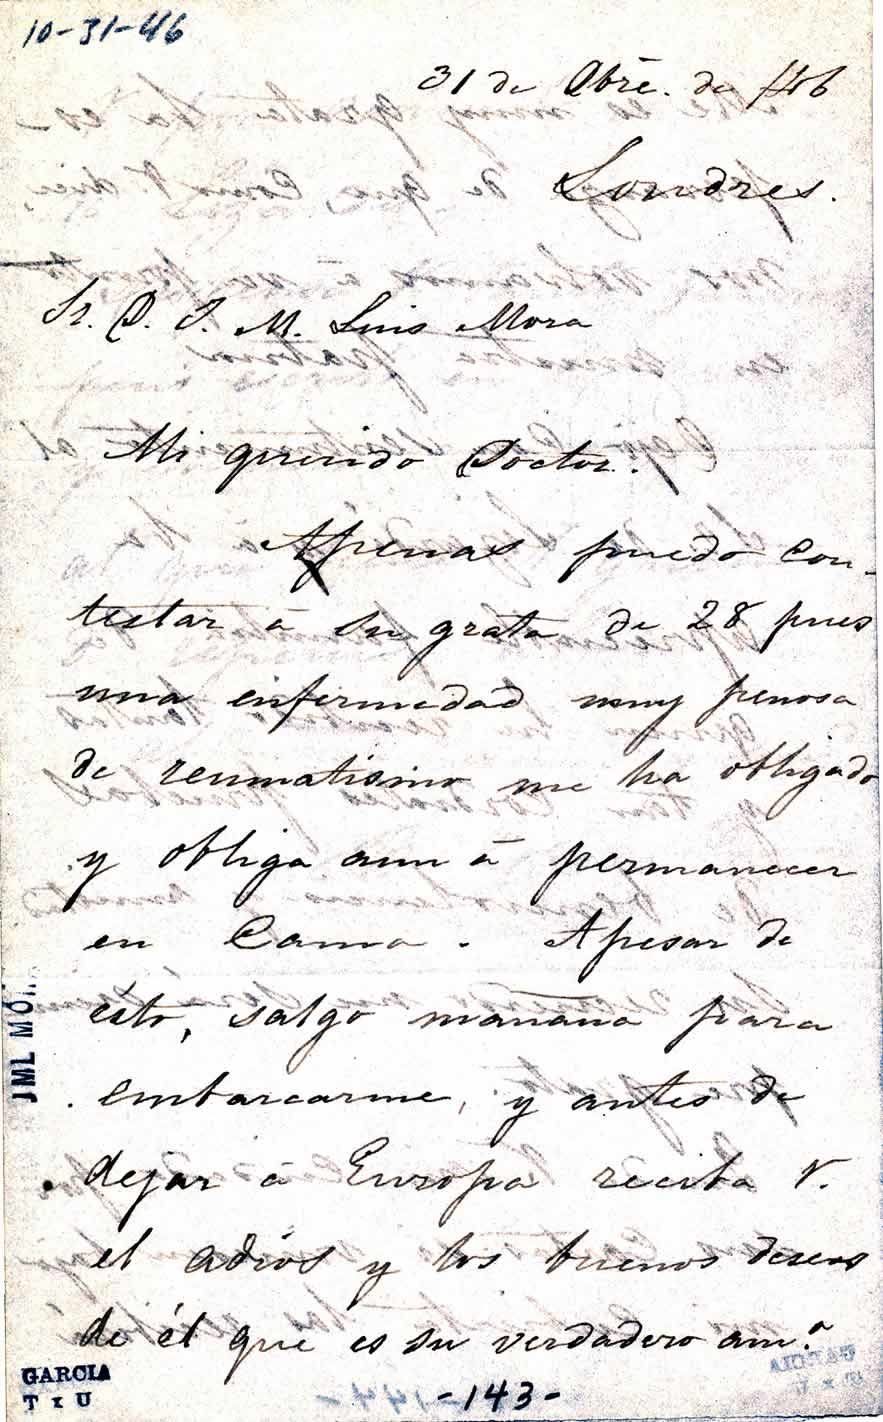 10-31-46
31 de Obre. de 146
Londres.
Sr. D. J. M. Luis Mora
Mi querido Doctor.
Apenas puedo con-
testar á su grata de 28 pues
una enfermedad muy penosa
de reumatismo me ha obligado
y obliga aun á permanecer
en Cama. Apesar de
ésto, salgo mañana para
embarcarme, y antes de
dejar á Europa reciba V.
el adios y los buenos deseos
de él que es su verdadero am.º
JML MO
GARCIA
T x U
-143-